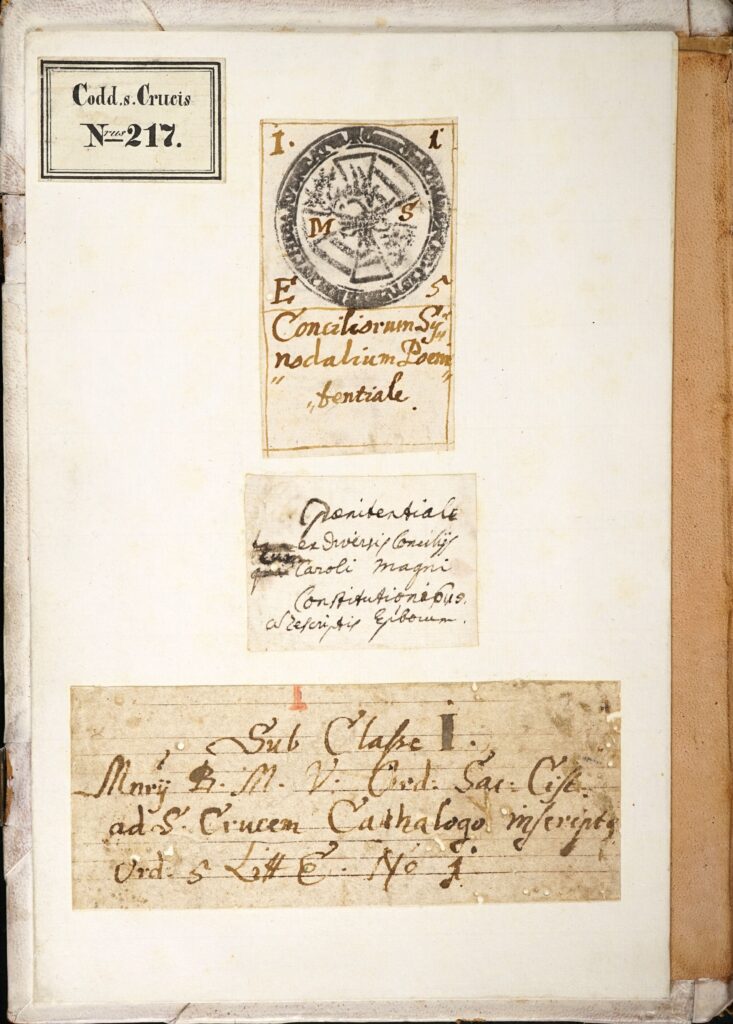 Codd. s. Crucis
Nrus 217.
I. 1
M S
E 5
Conciliorum Sy„
„nodalium Poeni„
„tentiale.
Poenitentiale
ex diversis Concilijs
Caroli Magni
Constitutionibus.
et Rescriptis Epborum.
I
Sub Classe I.
Mnrij B. M. V. Ord: Sac: Cist.
ad S. Crucem Cathalogo inscripto
Ord: 5 Litt E. No 1.